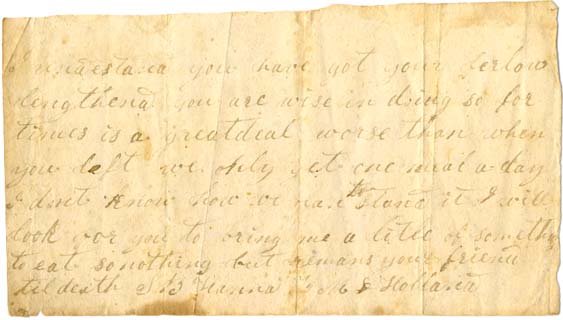 I understand you have got your ferlow
lengthend you are wise in doing so for
times is a greatdeal worse than when
you left we only get one meal a day
I dont Know how we stand it I will
look for you to bring me a little of something
to eat so nothing but remans your friend
til death S B Hanna Holland